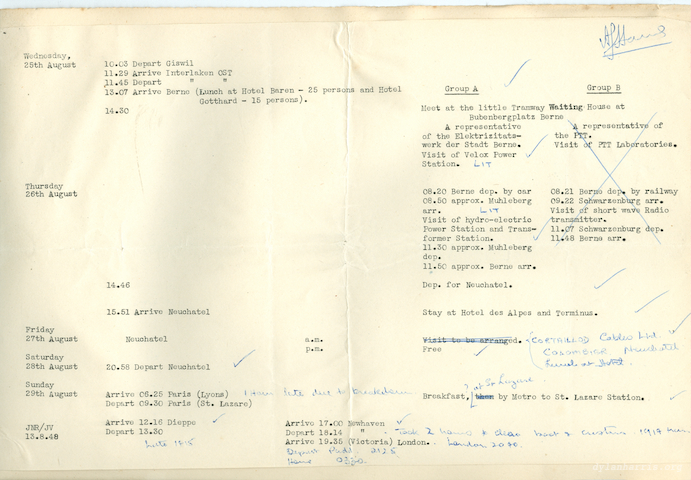 Wednesday,
25th August
10.03 Depart Giswil
11.29 Arrive Interlaken OST
11.45 Depart " "
13.07 Arrive Berne (Lunch at Hotel Baren - 25 persons and Hotel
Gotthard - 15 persons).
14.30
Group A
Group B
Meet at the little Tramway Waiting House at
Bubenbergplatz Berne
A representative
of the Elektrizitats-
werk der Stadt Berne.
Visit of Velox Power
Station. LIT
A representative of
the PTT.
Visit of PTT Laboratories.
Thursday
26th August
08.20 Berne dep. by car
08.50 approx. Muhleberg
arr. LIT
Visit of hydro-electric
Power Station and Trans-
former Station.
11.30 approx. Muhleberg
dep.
11.50 approx. Berne arr.
08.21 Berne dep. by railway
09.22 Schwarzenburg arr.
Visit of short wave Radio
transmitter.
11.07 Schwarzenburg dep.
11.48 Berne arr.
14.46
Dep. for Neuchatel.
15.51 Arrive Neuchatel
Stay at Hotel des Alpes and Terminus.
Friday
27th August
Neuchatel
a.m.
p.m.
Visit to be arranged.
Free
CORTAILLOD Cables Ltd.
COLOMBIER Neuchatel
Lunch at Hotel.
Saturday
28th August
20.58 Depart Neuchatel
Sunday
29th August
Arrive 06.25 Paris (Lyons) 1 hour late due to breakdown
Depart 09.30 Paris (St. Lazare)
at St Lazare
Breakfast, then by Metro to St. Lazare Station.
JBR/JV
13.8.48
Arrive 12.16 Dieppe
Depart 13.30
Late 1415
Arrive 17.00 Newhaven
Depart 18.14 " Took 2 hours to clear boat & customs. 1914
Arrive 19.35 (Victoria) London. London 2040.
Depart Padd. 2125
Home
dylanharris.org